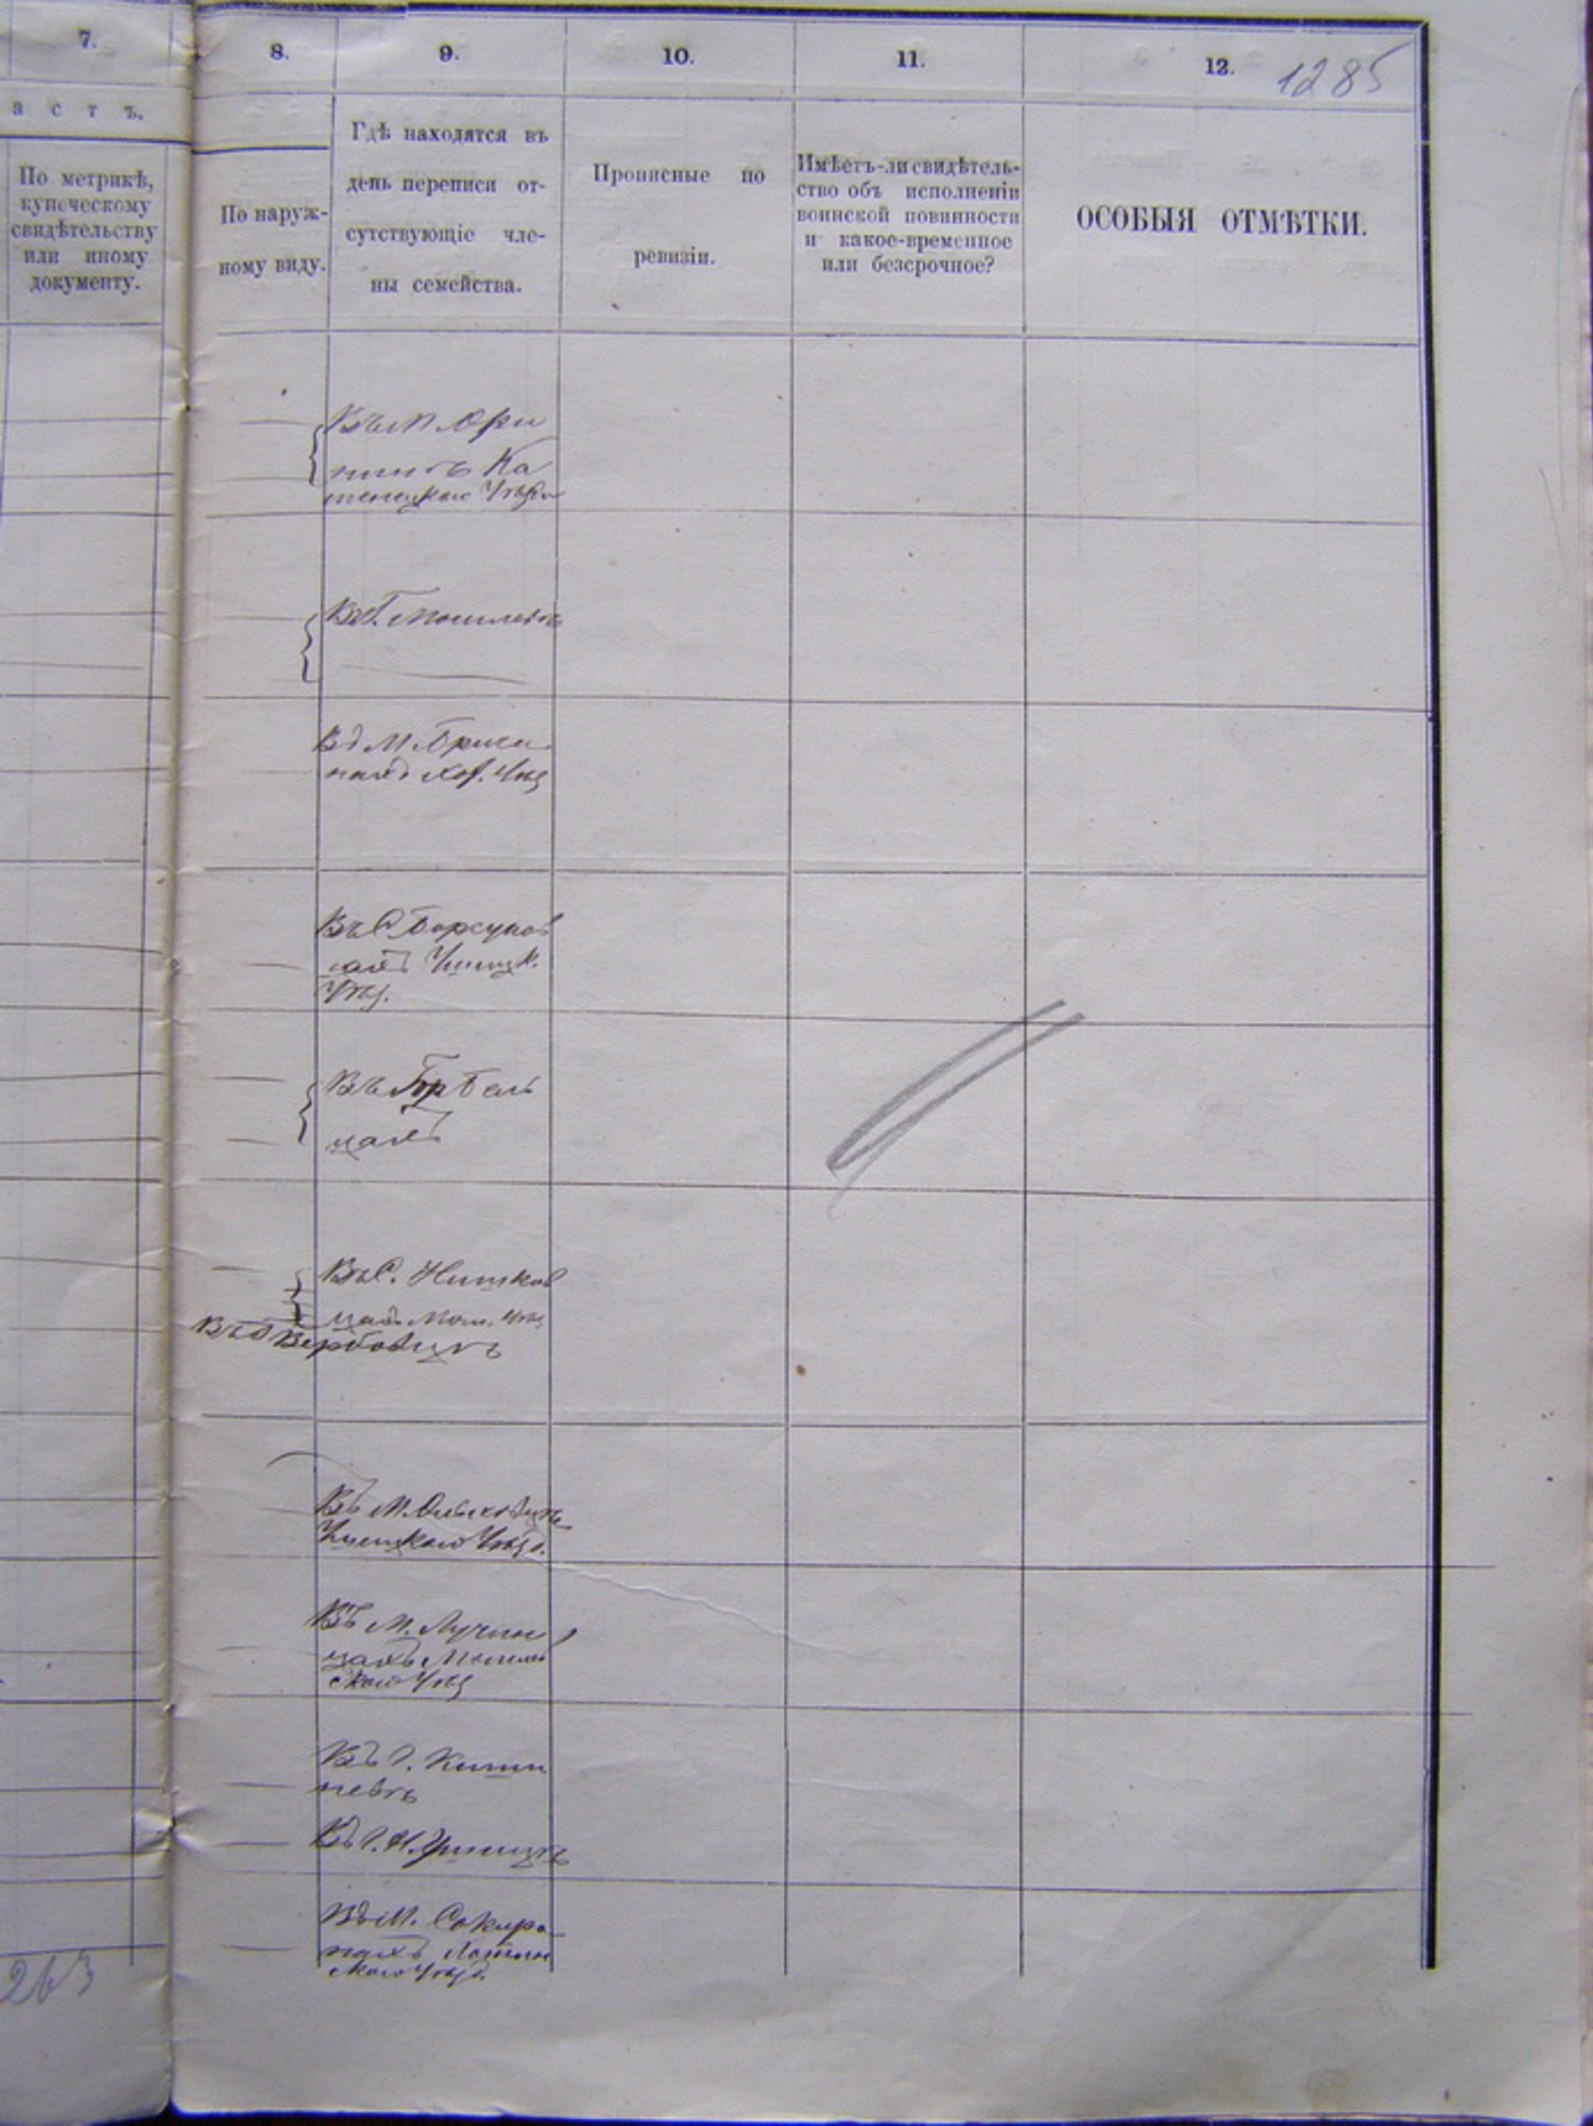 7.
8.
9.
10.
11.
12.
1285
а с т ъ.
По метрикѣ,
купеческому
свидѣтельству
или иному
документу.
По наруж-
ному виду.
Гдѣ находятся въ
день переписи от-
сутствующіе чле-
ны семейства.
Прописные по
ревизіи.
Имѣетъ-ли свидѣтель-
ство объ исполненіи
воинской повинности
и какое-временное
или безсрочное?
ОСОБЫЯ ОТМѢТКИ.
Въ М. Ори
нинѣ Ка
менецкаго Уѣзда
Въ Г. Могилевѣ
Въ М. Брича
нахъ Хот. Уѣз
Въ С. Борсуков
цахъ Ушицк.
Уѣз.
Въ Бель
цахъ
Въ С. Нишков
цахъ Мог. Уѣз
Въ Вербовцѣ
Въ М. Ольховцѣ
Ушицкаго Уѣзд.
Въ М. Лучин
цахъ Могилев
скаго Уѣз
Въ Г. Киши
невѣ
Въ Г. Н. Ушицѣ
Въ М. Сокиря
нахъ Хотин
скаго Уѣзд.
263